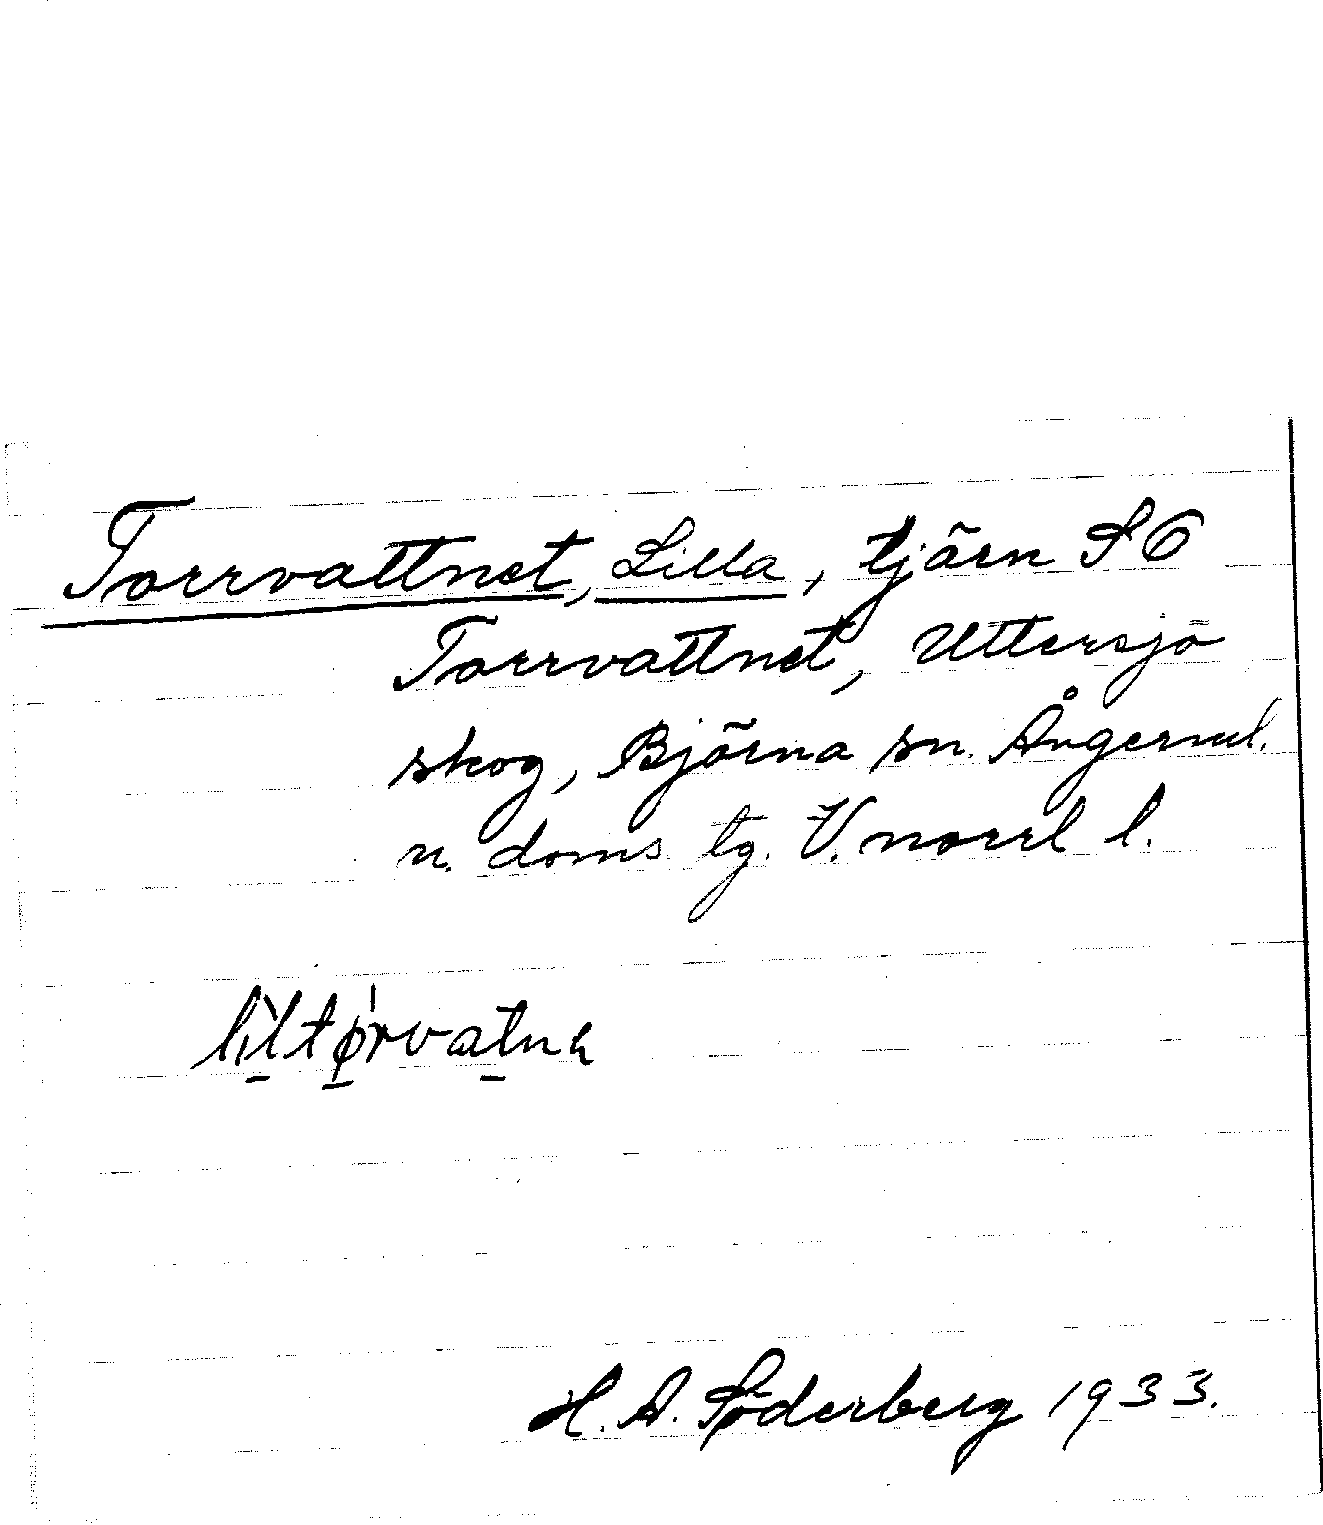 Torrvattnet, Lilla, tjärn SO
Torrvattnet, Uttersjö
skog, Björna sn. Ångerml.
n. doms tg. V. norrl l.
H. A. Söderberg 1933.